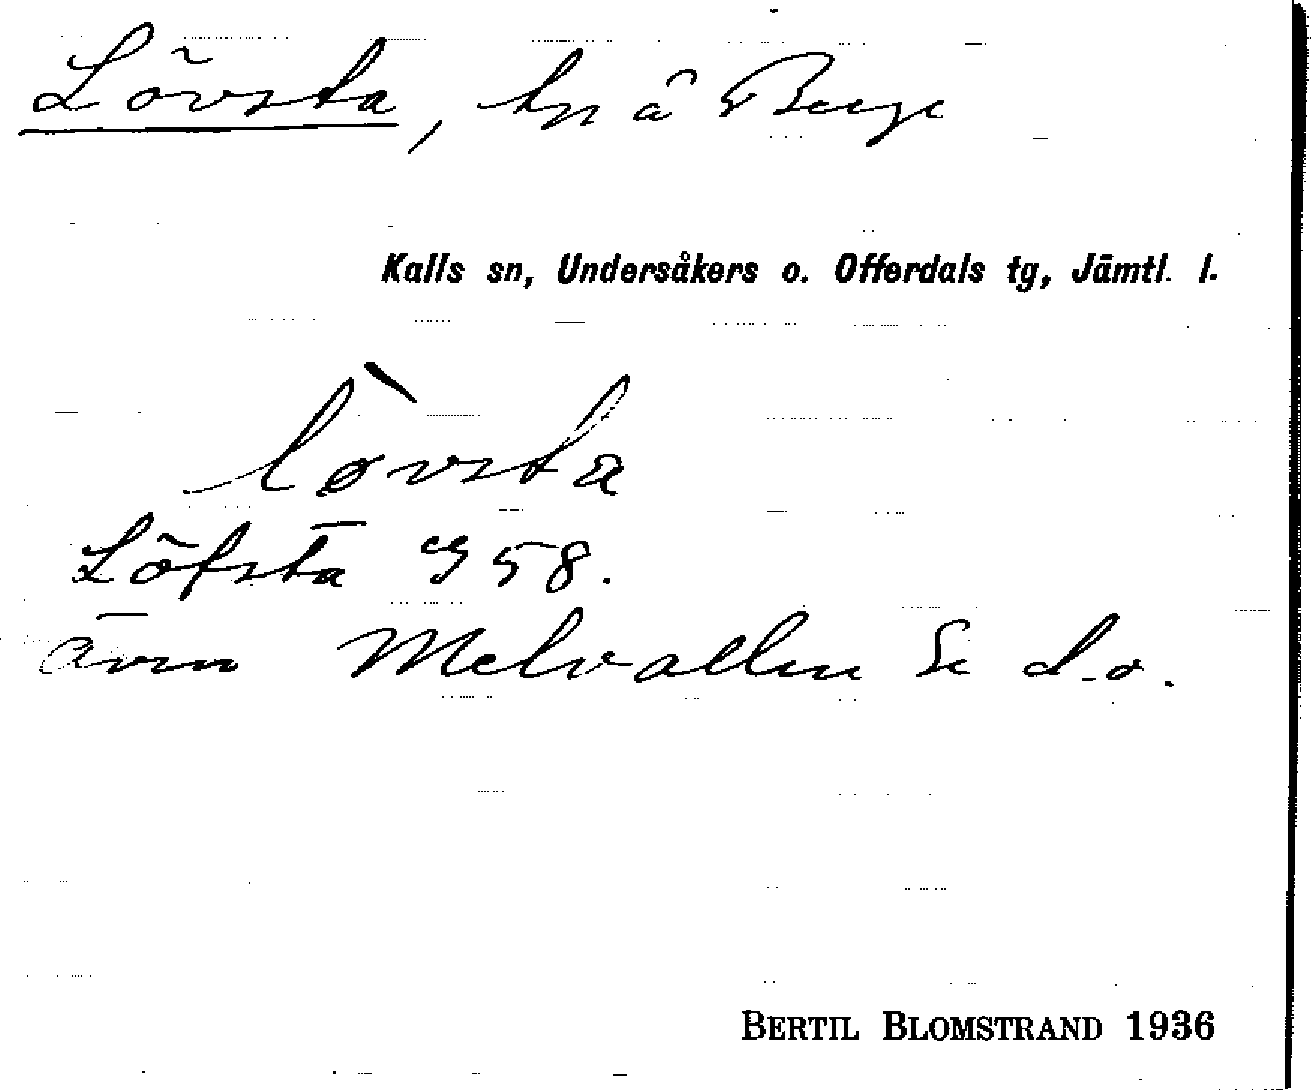 Lövsta, hn å Berge
Kalls sn, Undersåkers o. Offerdals tg, Jämtl. l.
`løvsta
Löfsta GS 58.
även Melvallen Se d.o.
BERTIL BLOMSTRAND 1936